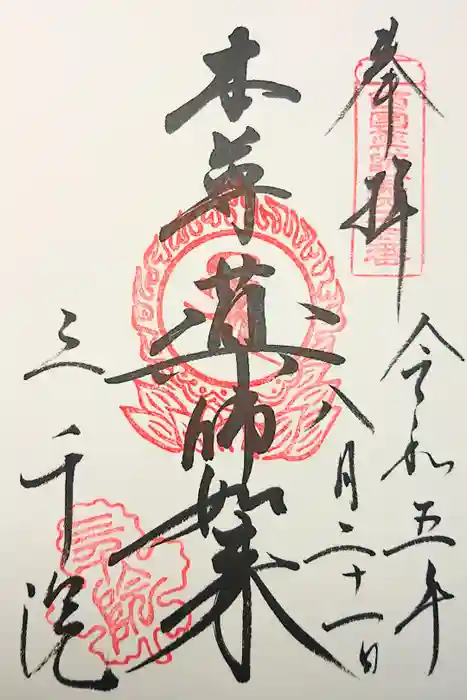 奉拝
令和五年
八月二十一日
本尊 薬師如来
三千院